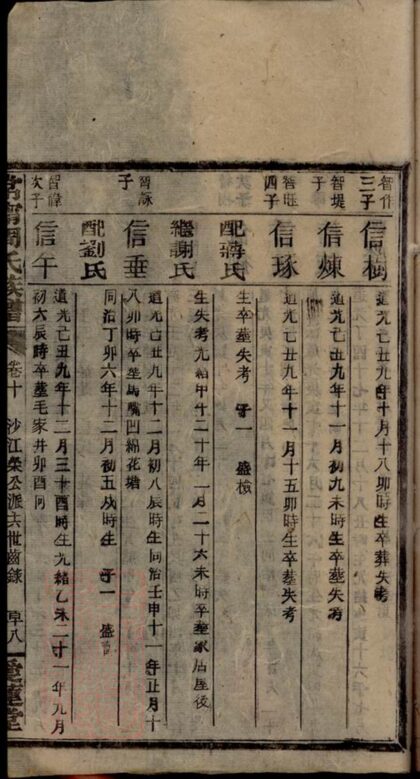 三子
信樹 道光己丑九年十月十八卯時生卒葬失考
智堤子
信煉 道光己丑九年十一月初九未時生卒塟失考
智旺四子
信琢 道光己丑九年十一月十五卯時生卒塟失考
配蔣氏 生卒塟失考 子一 盛檢
繼謝氏 生失考光緒甲午二十年一月二十六未時卒塟家居屋後
智詠子
信垂 道光己丑九年十二月初八辰時生同治壬申十一年正月十
八卯時卒塟馬嘶凹綿花塘
配劉氏 同治丁卯六年十二月初五戍時生 子一 盛
智偉次子
信午 道光己丑九年十二月三十酉時生光緒乙未二十一年九月
初六辰時卒塟毛家井卯酉向
周氏族譜 卷十 沙江榮公派六世齒錄 愛蓮堂